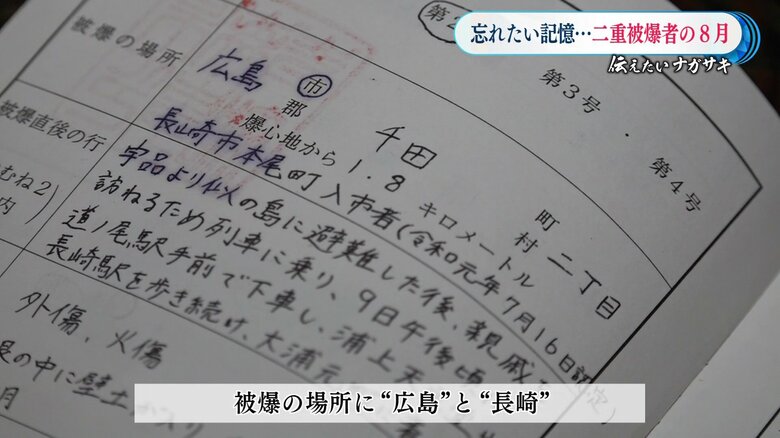 忘れたい記憶…二重被爆者の8月
伝えたいナガサキ
第3号・第4号
被爆の場所
広島 市 郡 千田 町 村 二丁目
爆心地から 1.8 キロメートル
長崎市本尾町入市者(令和元年7月16日認定)
被爆直後の行
むね2
内)
宇品より似の島に避難した後、親戚
訪ねるため列車に乗り、9日午後頃
道ノ尾駅手前で下車し、浦上天
長崎駅を歩き続け、大浦元
外傷、火傷
の中に壁土が入り
月
被爆の場所に“広島”と“長崎”